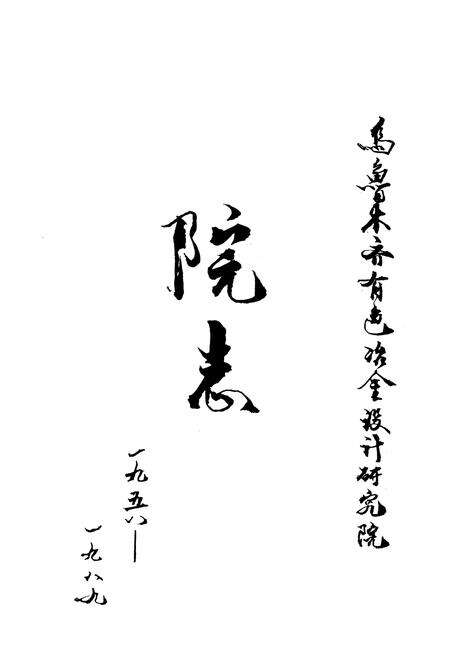 乌鲁木齐有色冶金设计研究院
院志
一九五八—
一九八九